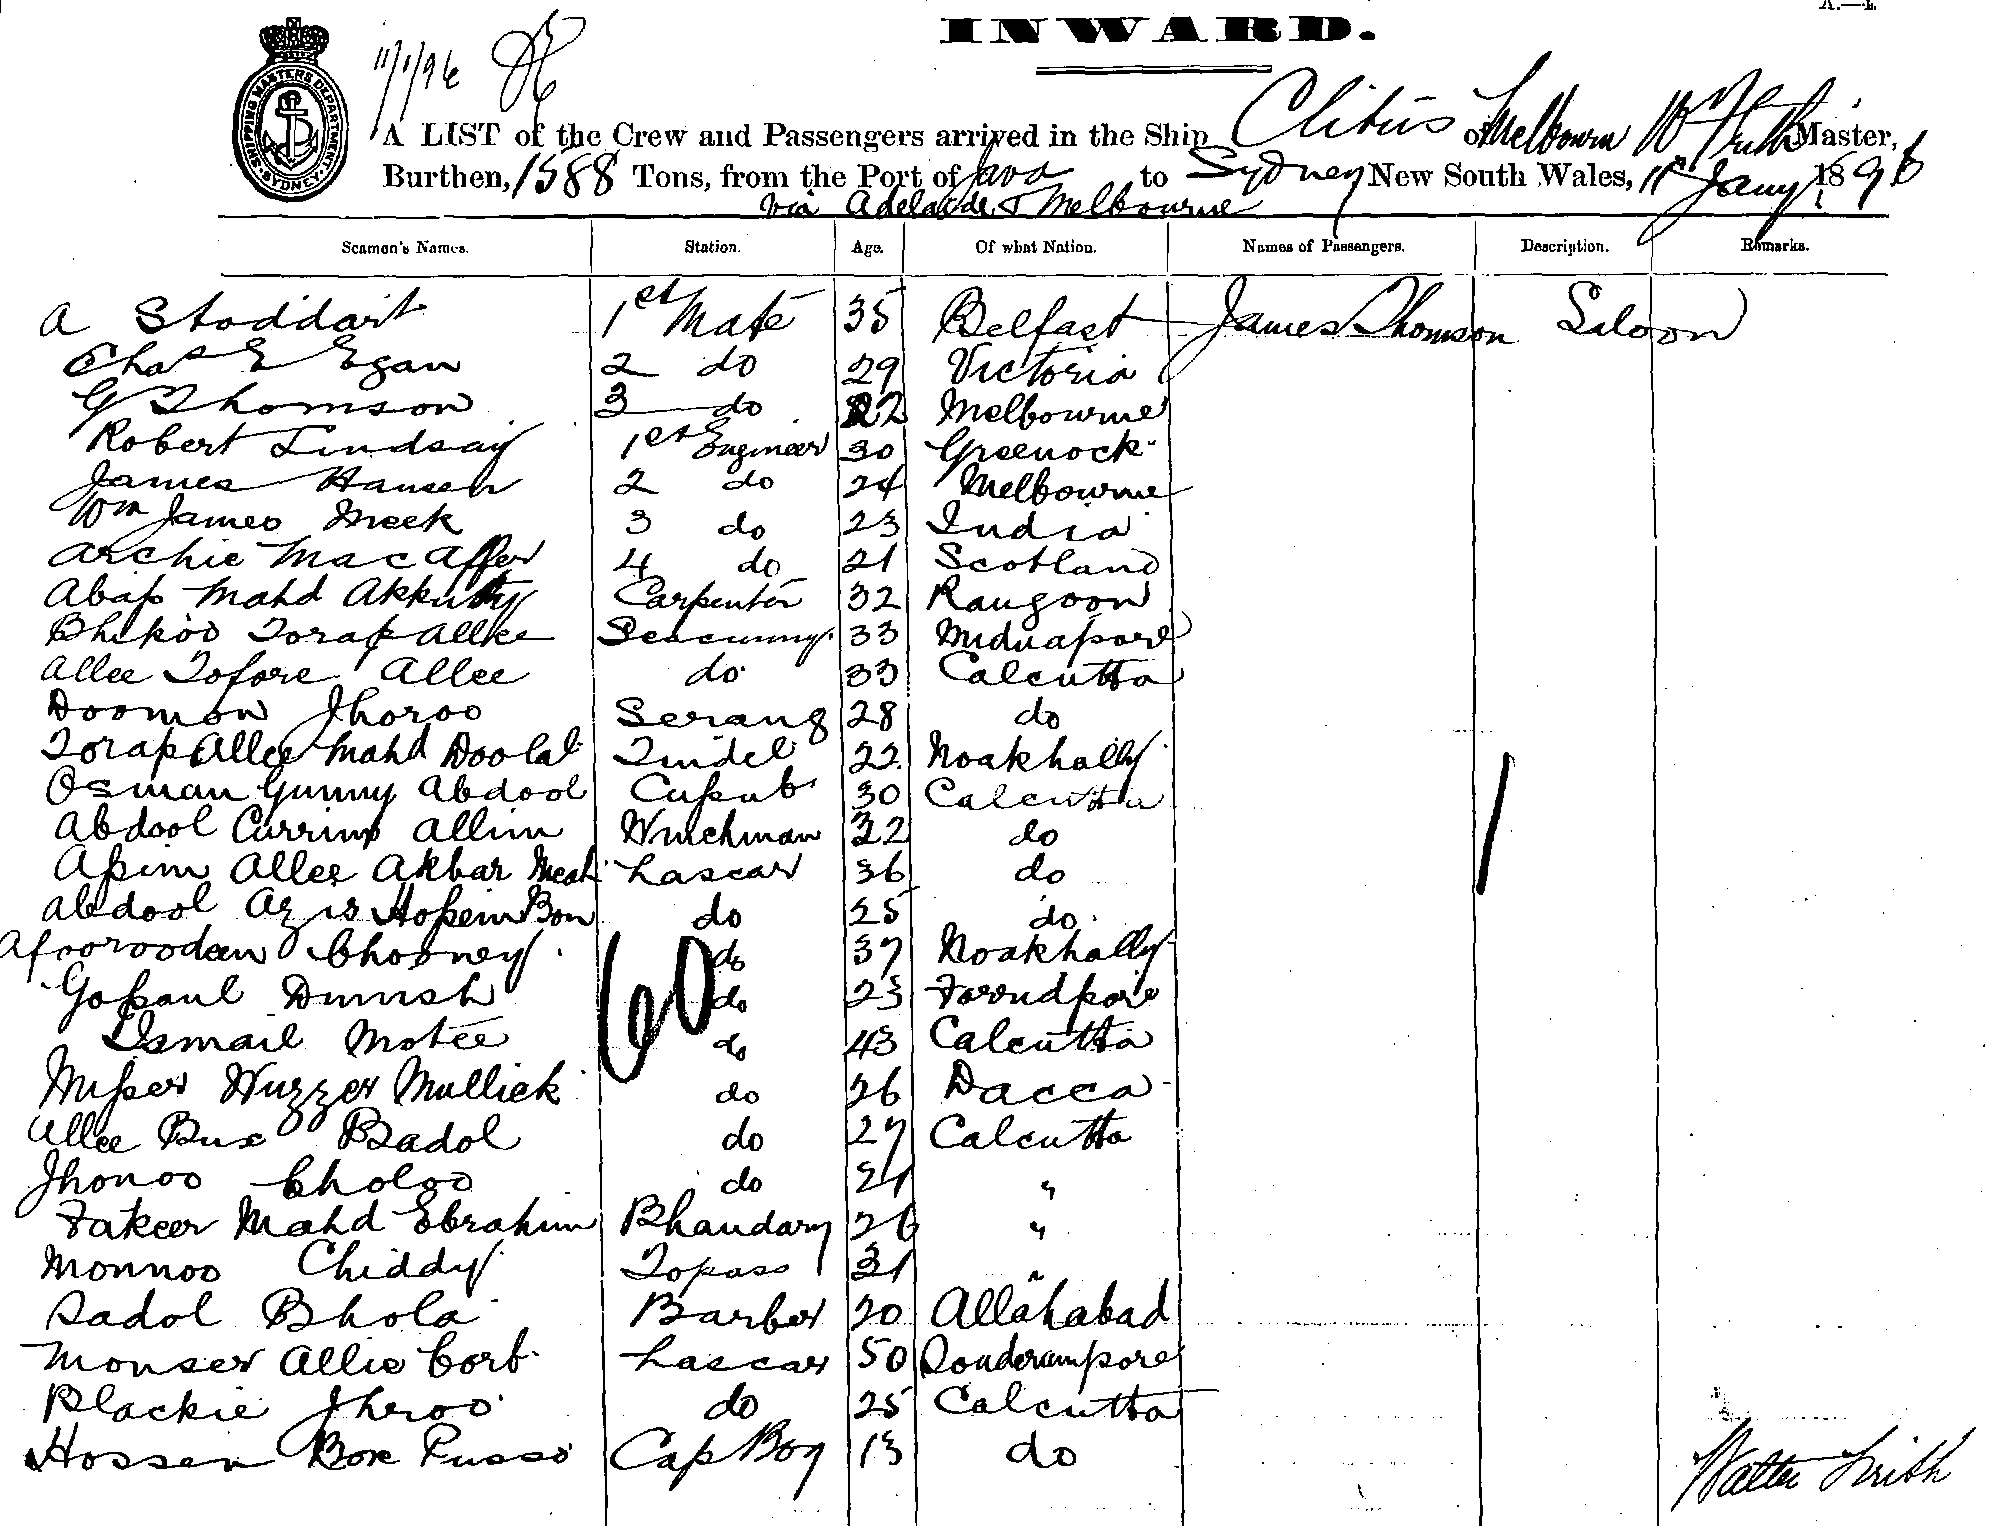 A.—4.
INWARD.
SHIPPING MASTERS DEPARTMENT SYDNEY
11/1/96
A LIST of the Crew and Passengers arrived in the Ship Clitus of Melbourn Wr Frith Master,
Burthen, 1588 Tons, from the Port of Java to Sydney New South Wales, 11th Jany 1896
via Adelaide & Melbourne
Seamen's Names. Station. Age. Of what Nation. Names of Passengers. Description. Remarks.
A Stoddart 1st Mate 35 Belfast James Thomson Saloon
Chas E Egan 2 do 29 Victoria
G Thomson 3 do 22 Melbourne
Robert Lindsay 1st Engineer 30 Greenock
James Hansen 2 do 24 Melbourne
Wm James Meek 3 do 23 India
Archie MacAffer 4 do 21 Scotland
Abap Mahd Akkutty Carpenter 32 Rangoon
Bhikoo Torap Allee Seacunny 33 Midnapore
Allee Tofore Allee do 33 Calcutta
Doomon Jhoroo Serang 28 do
Torap Allee Mahd Doolal Tindel 22 Noakhally
Osman Gunny Abdool Cupub 30 Calcutta
Abdool Currim Allim Winchman 32 do
Apim Allee Akbar Meah Lascar 36 do
Abdool Azis Hopein Bon do 25 do
Afooroodeen Chooney do 37 Noakhally
Gopaul Dinnsh do 23 Foreudpore
60
Ismail Motee do 43 Calcutta
Muper Wuzzer Mullick do 26 Dacca
Allee Bux Badol do 27 Calcutta
Jhonoo Choloo do 21 "
Fakeer Mahd Ebrahim Bhandary 26 "
Monnoo Chiddy Topass 31 "
Sadol Bhola Barber 20 Allahabad
Monser Allie Corb Lascar 50 Douderampore
Blackie Jheroo do 25 Calcutta
Hossen Box Pusso Cap Boy 13 do
Walter Frith